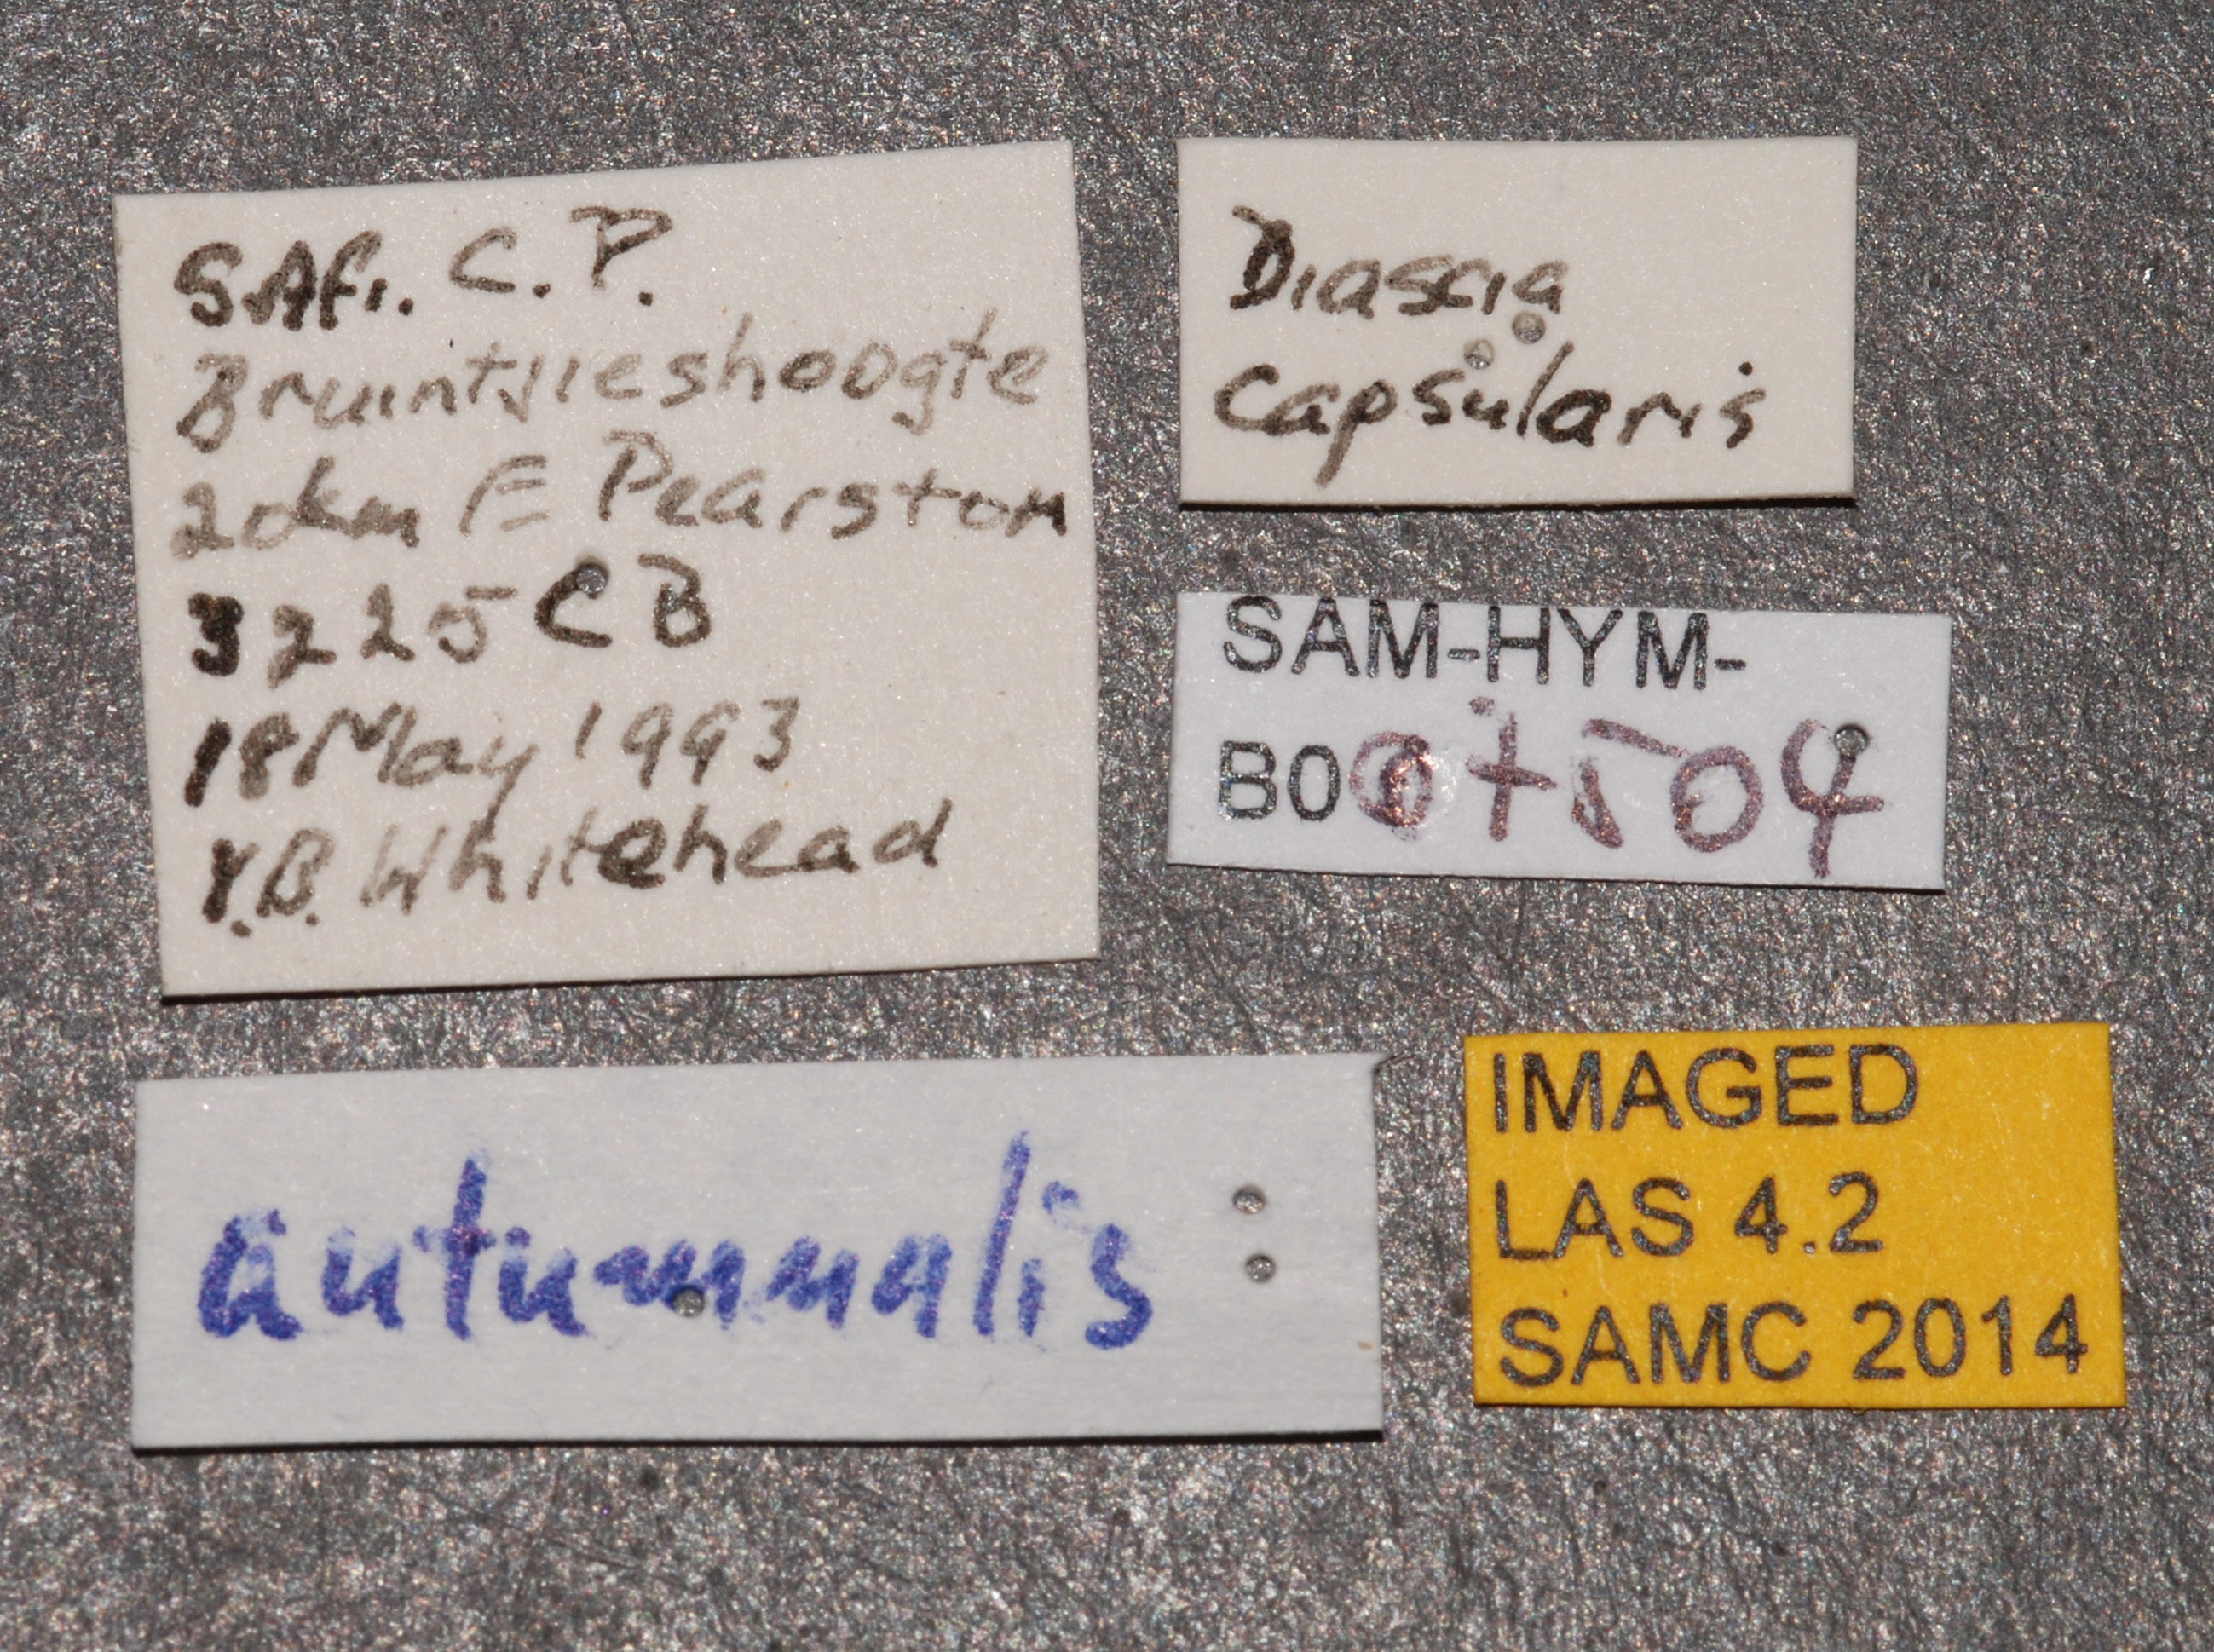 S.Afr. C.P.
Bruintjieshoogte
20km E Pearston
3225CB
18 May 1993
V.B. Whitehead
Diascia
capsularis
SAM-HYM-
autumnalis
IMAGED
LAS 4.2
SAMC 2014